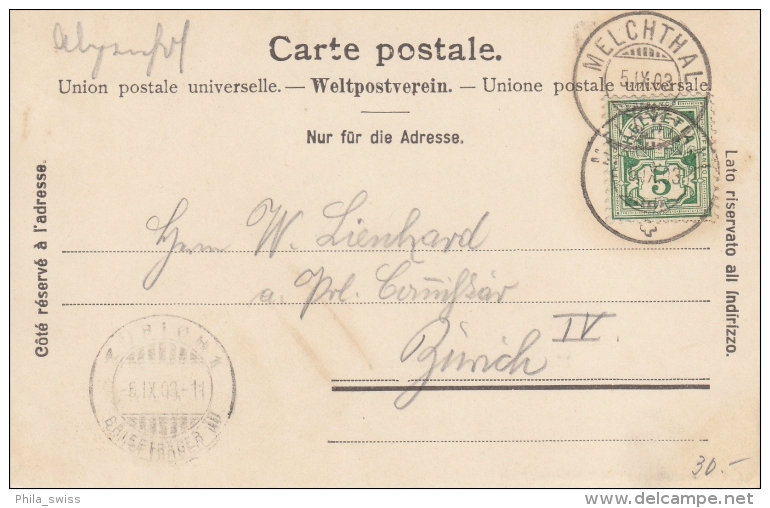 Carte postale.
Union postale universelle. — Weltpostverein. — Unione postale universale.
Nur für die Adresse.
Côté réservé à l'adresse.
Lato riservato all indirizzo.
MELCHTHAL
5.IX.03
HELVETIA
5
Herrn W. Lienhard
a. Pol.
Zürich IV
ZÜRICH 1
-6.IX.03.-11
BRIEFTRÄGER
30.-
Phila_swiss
delcampe.net